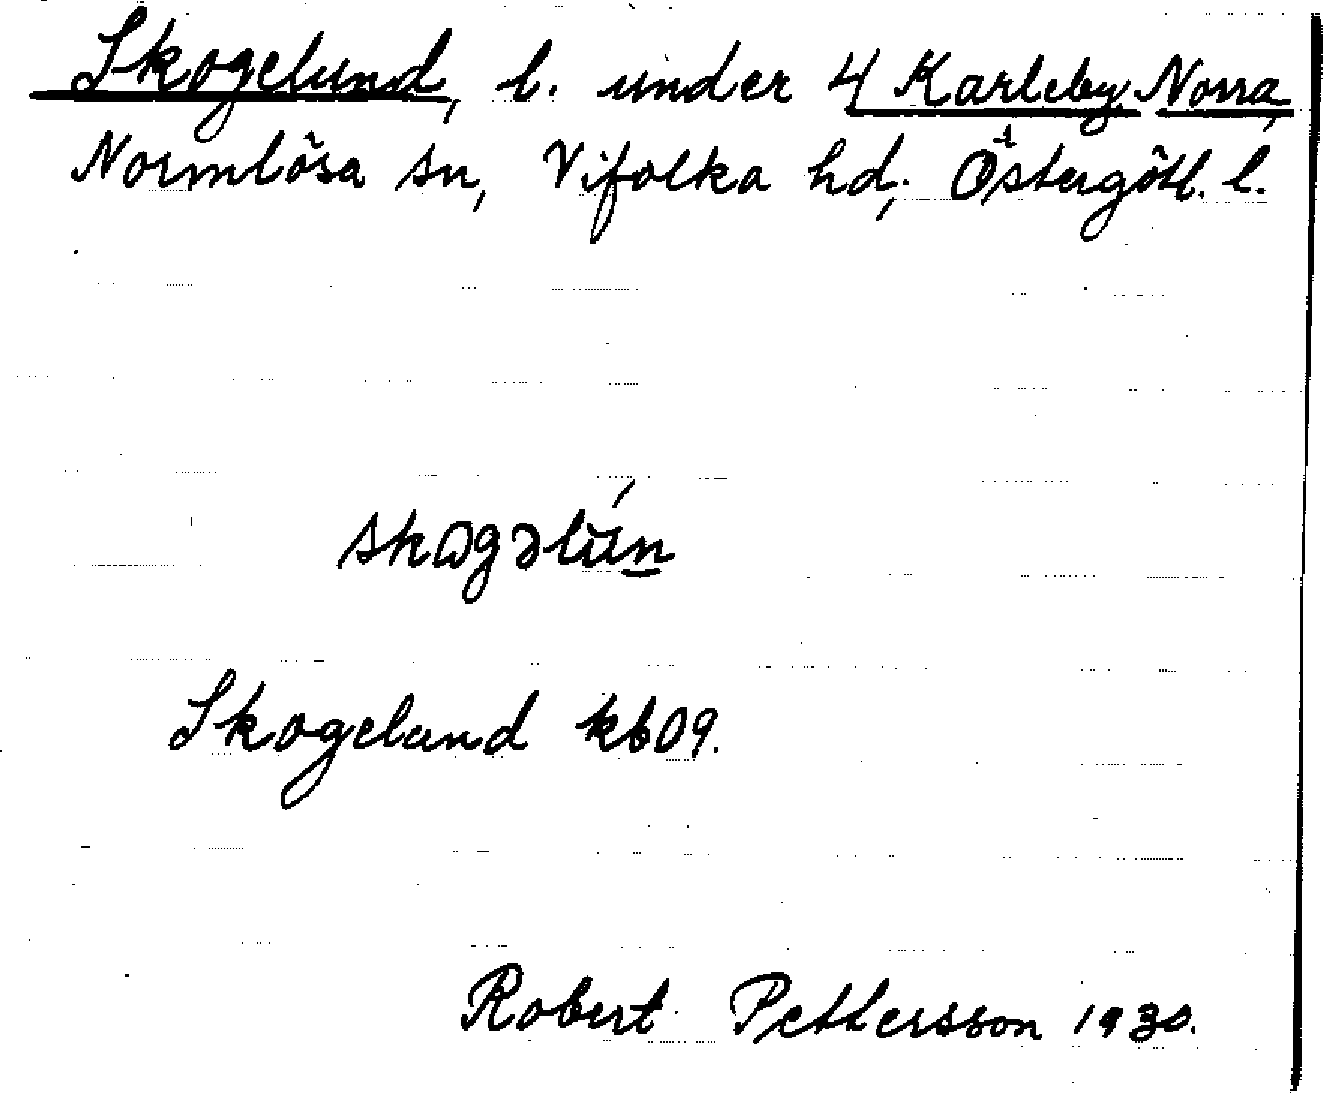 Skogelund, l. under 4 Karleby Norra,
Normlösa sn, Vifolka hd, Östergötl. l.
skɷgəlún
Skogelund kb09.
Robert Pettersson 1930.